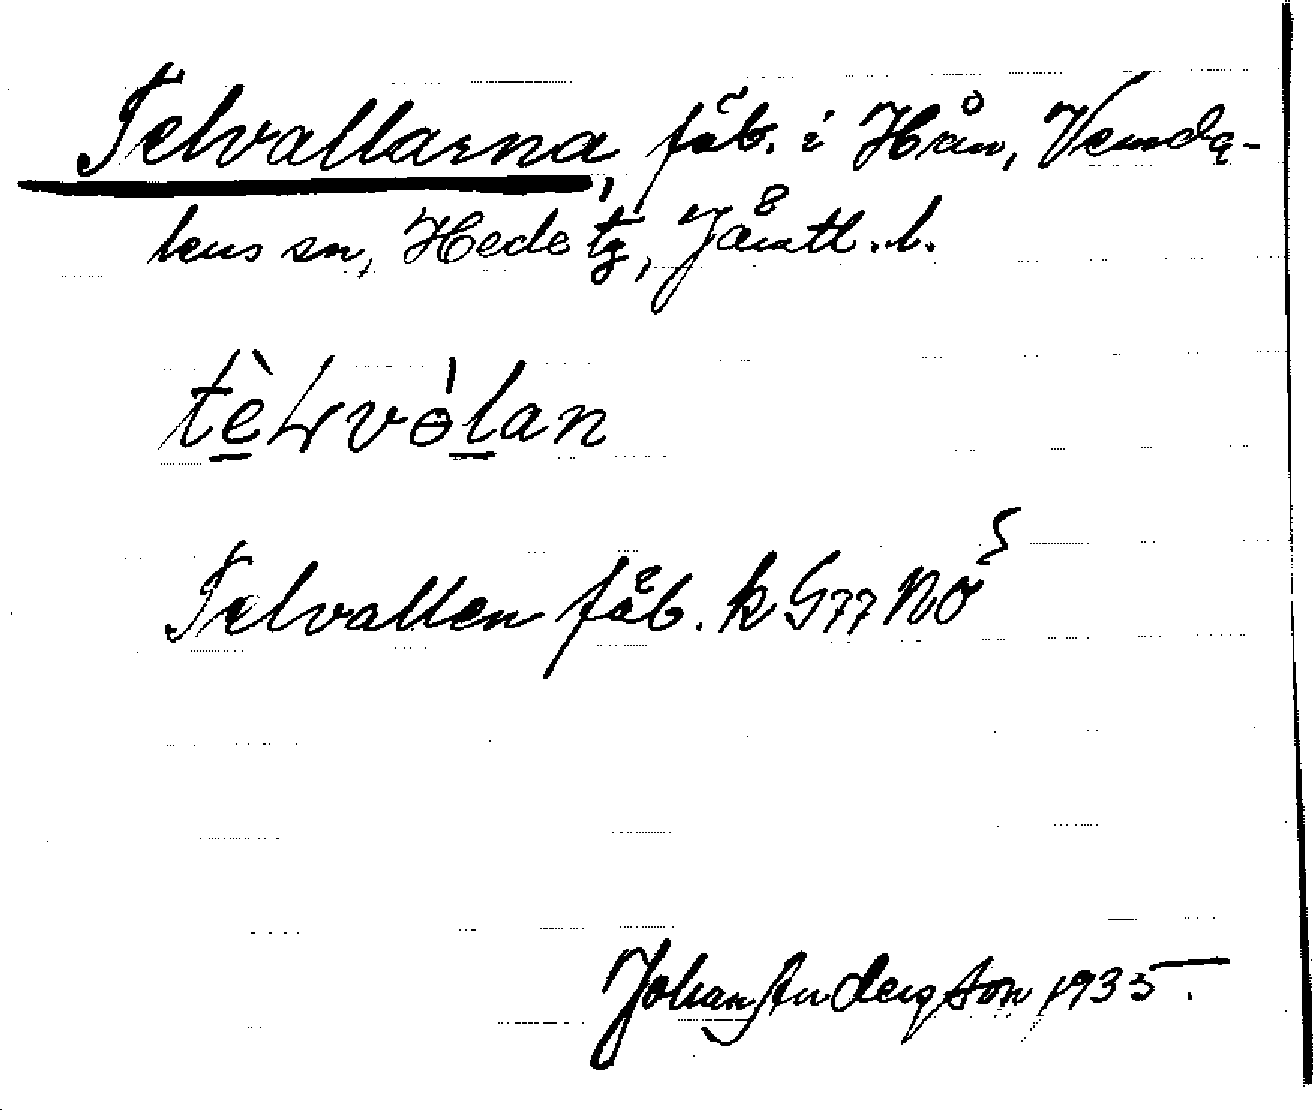 Telvallarna, fäb. i Hån, Vemda-
lens sn, Hede tg, Jämtl. l.
tèLvòlan
Telvallen fäb. k G77 NO
Johan Anderson 1935.